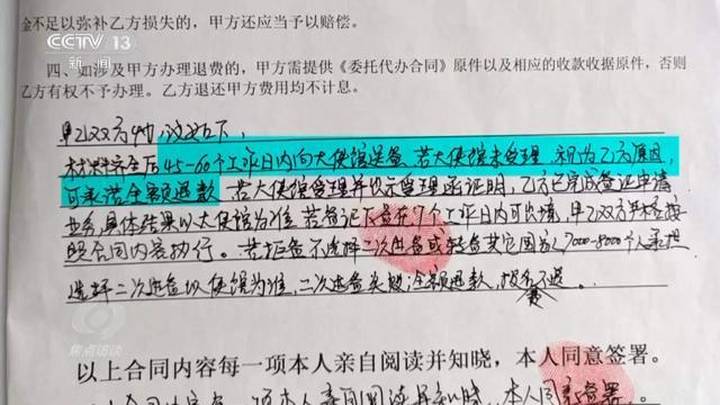 CCTV 13
新闻
金不足以弥补乙方损失的，甲方还应当予以赔偿。
四、如涉及甲方办理退费的，甲方需提供《委托代办合同》原件以及相应的收款收据原件，否则
乙方有权不予办理。乙方退还甲方费用均不计息。
甲乙双方
材料齐全后45-60个工作日内向大使馆送签，若大使馆未受理，视为乙方原因，
可承诺全额退款 若大使馆受理并提示受理函证明，乙方已完成签证申请
业务具体结果以大使馆为准 若签证 个工作日内可 甲乙双方 按
照合同内容执行。若拒签不选择二次送签或转签其它国家 7000-8000个人承担
选择二次送签以使馆为准，二次送签失败，全额退款，
焦点访谈
以上合同内容每一项本人亲自阅读并知晓，本人同意签署。
项本人亲自阅读并知晓，本人同意签署。